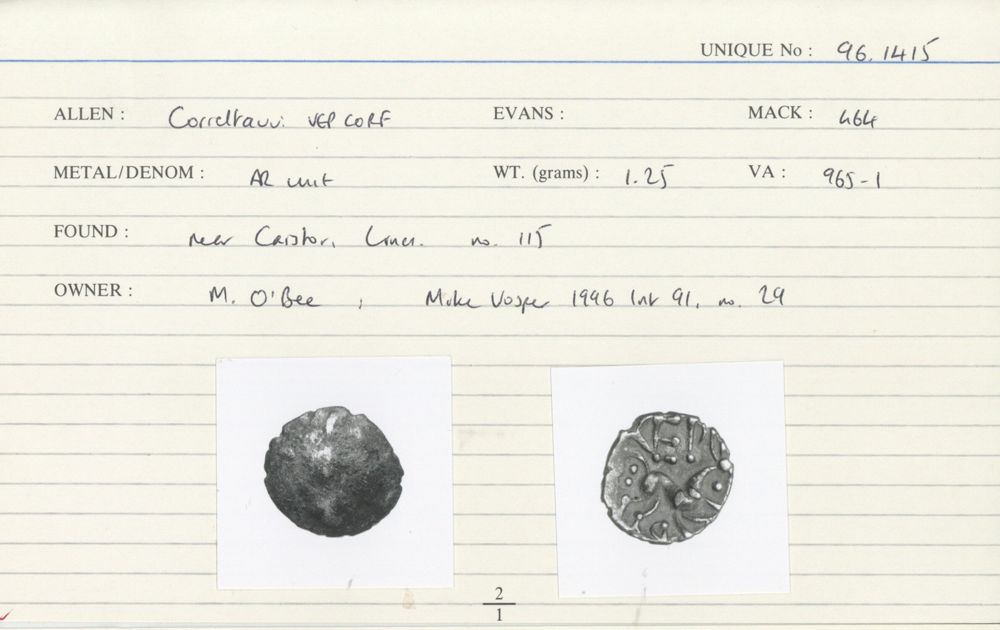 UNIQUE No : 96.1415
ALLEN : Correltauvi VEP CORF EVANS : MACK : 464
METAL/DENOM : AR unit WT. (grams) : 1.25 VA : 965-1
FOUND : near Caistor, Lincs. no. 115
OWNER : M. O'Bee ; Mike Vosper 1996 Int 91, no. 29
2
1